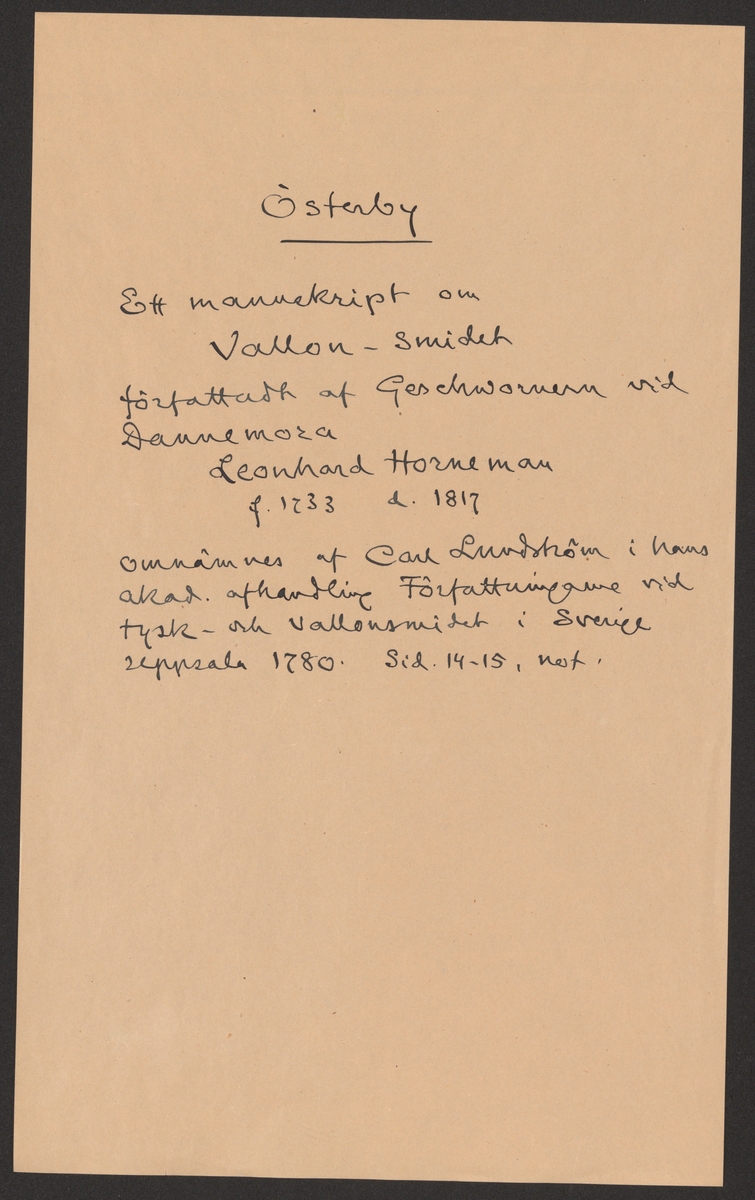 Österby
Ett manuskript om
Vallon-smidet
författadt af Geschwornern vid
Dannemora
Leonhard Horneman
f. 1733 d. 1817
omnämnes af Carl Lundström i hans
akad. afhandling Författningarne vid
tysk- och Vallonsmidet i Sverige
Uppsala 1780. Sid. 14-15, not.